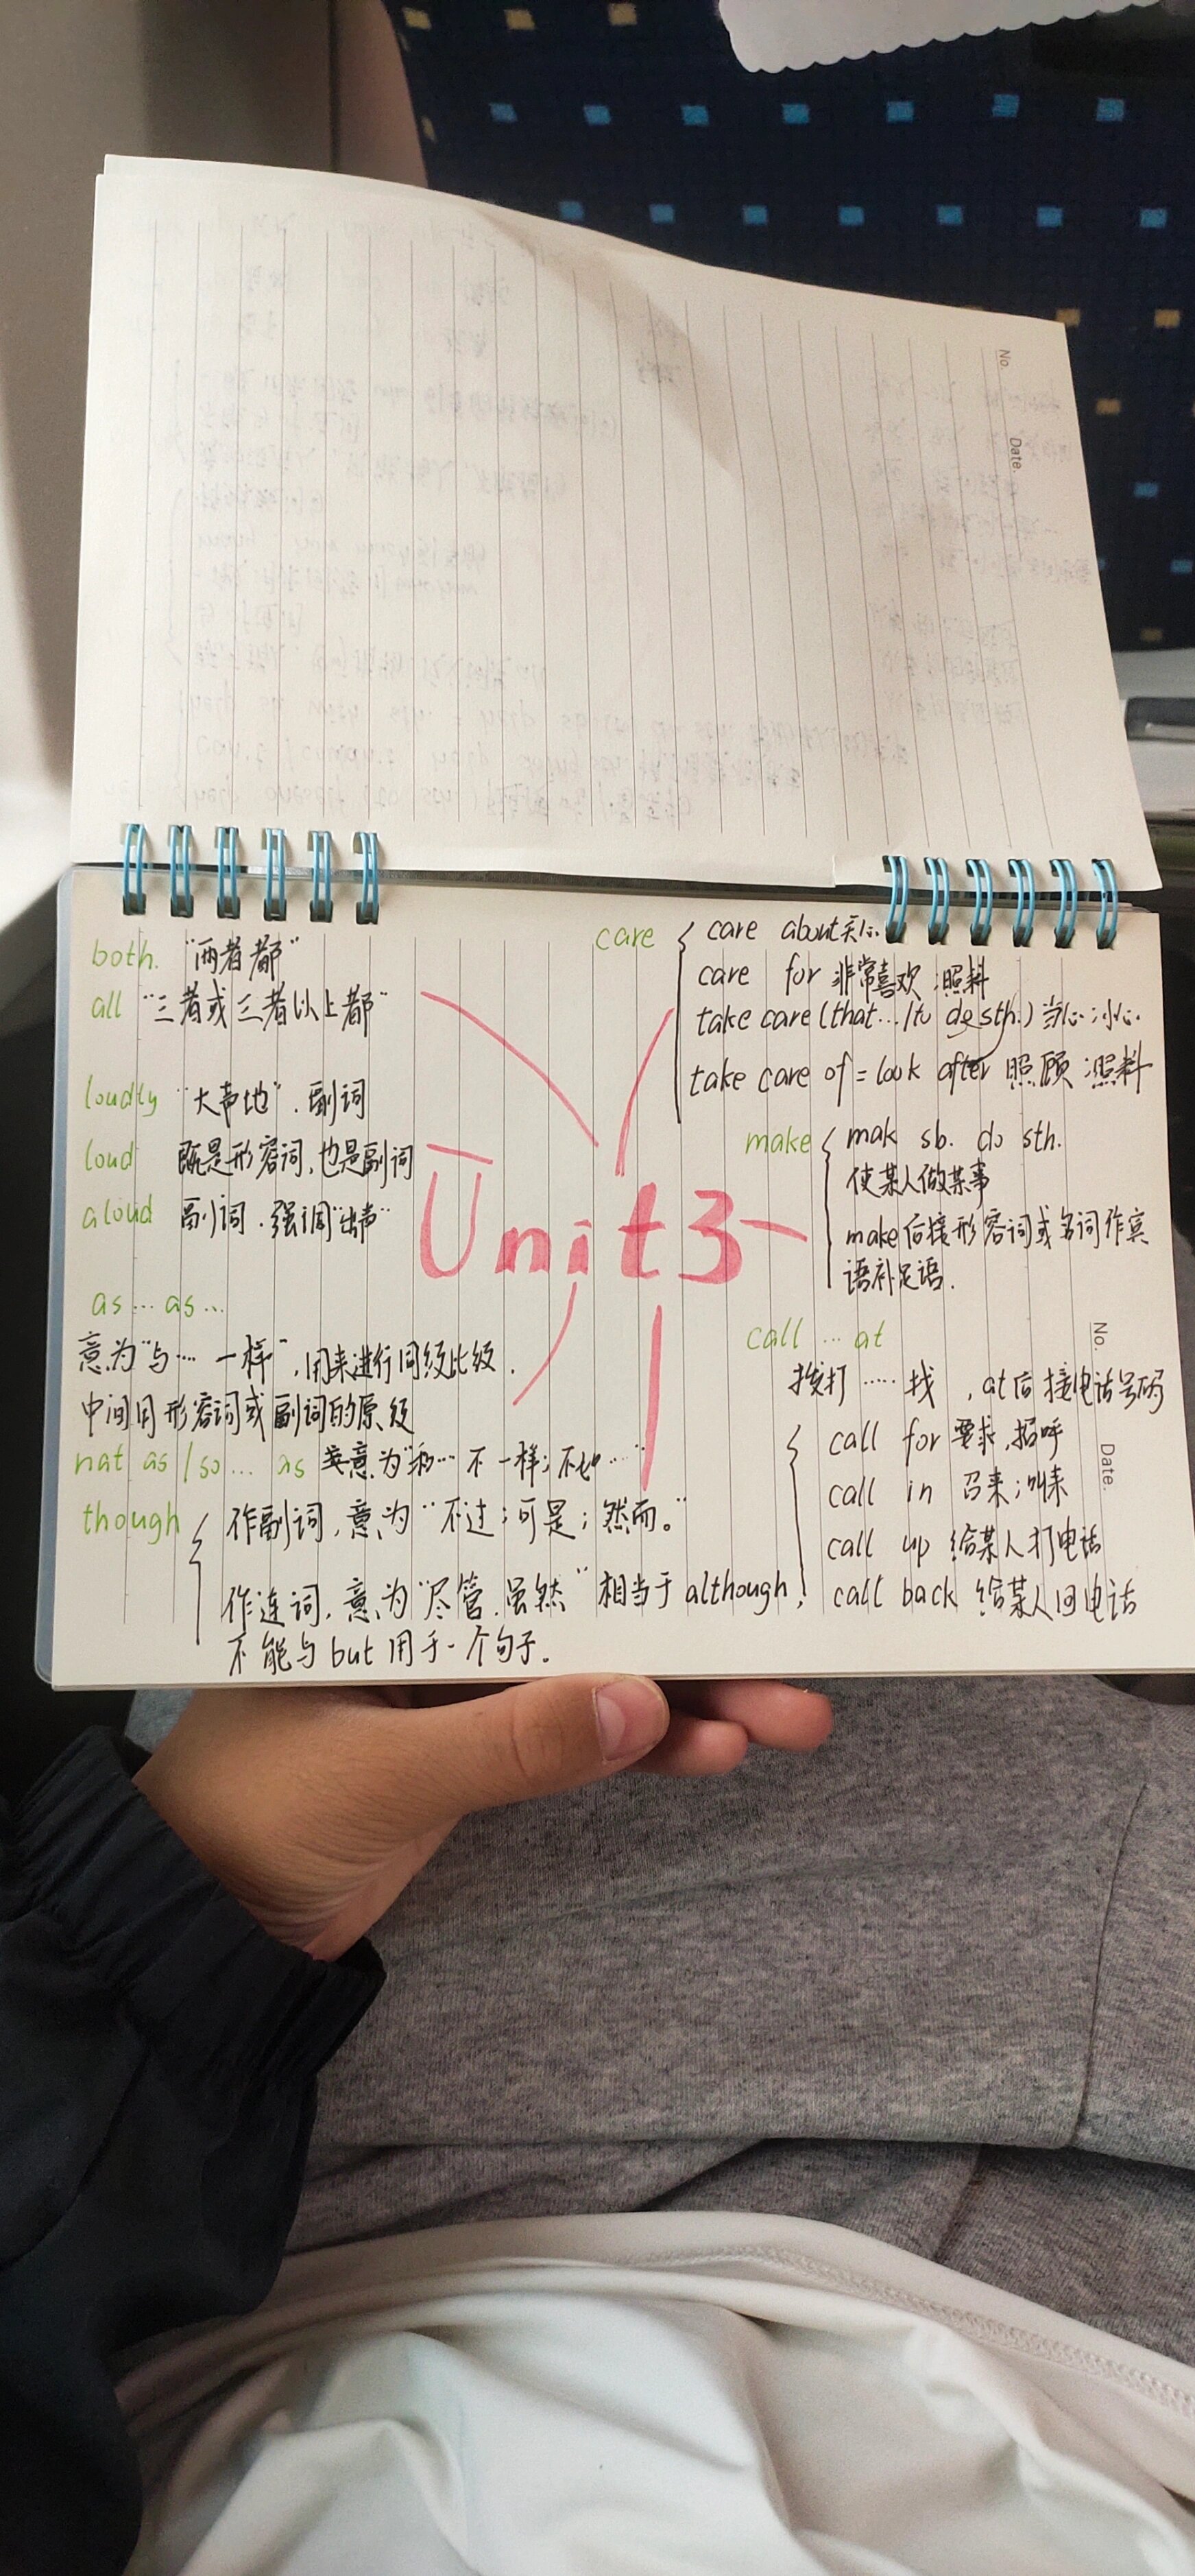 No.
Date.
both. "两者都"
all "三者或三者以上都"
loudly "大声地". 副词
loud 既是形容词,也是副词
aloud 副词.强调"出声"
as…as…
意为"与…一样",用来进行同级比较.
中间用形容词或副词的原级
nat as/so…as 意为"和…不一样;不如…"
though 作副词,意为"不过;可是;然而。"
作连词,意为"尽管.虽然"相当于although,
不能与but用于一个句子.
Unit3
care care about关心.
care for 非常喜欢;照料
take care(that…/to do sth.)当心;小心.
take care of=look after 照顾;照料
make mak sb. do sth.
使某人做某事
make后接形容词或名词作宾
语补足语.
call … at
拨打……找 ,at后接电话号码
call for 要求,招呼
call in 召来;叫来
call up 给某人打电话
call back 给某人回电话
No.
Date.